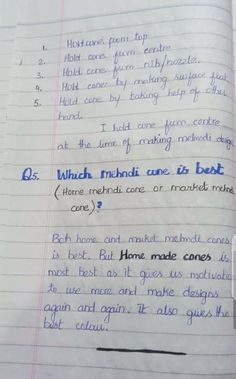 1. Hold cone from top.
2. Hold cone from centre
3. Hold cone from nib/nozzle.
4. Hold cone by making surface flat
5. Hold cone by taking help of other
hand.
I hold cone from centre
at the time of making mehndi desig
Q5. Which mehndi cone is best
(Home mehndi cone or market mehnd
cone)?
Both home and market mehndi cones
is best. But Home made cones is
most best as it gives us motivatio
to use more and make designs
again and again. It also gives the
best colour.